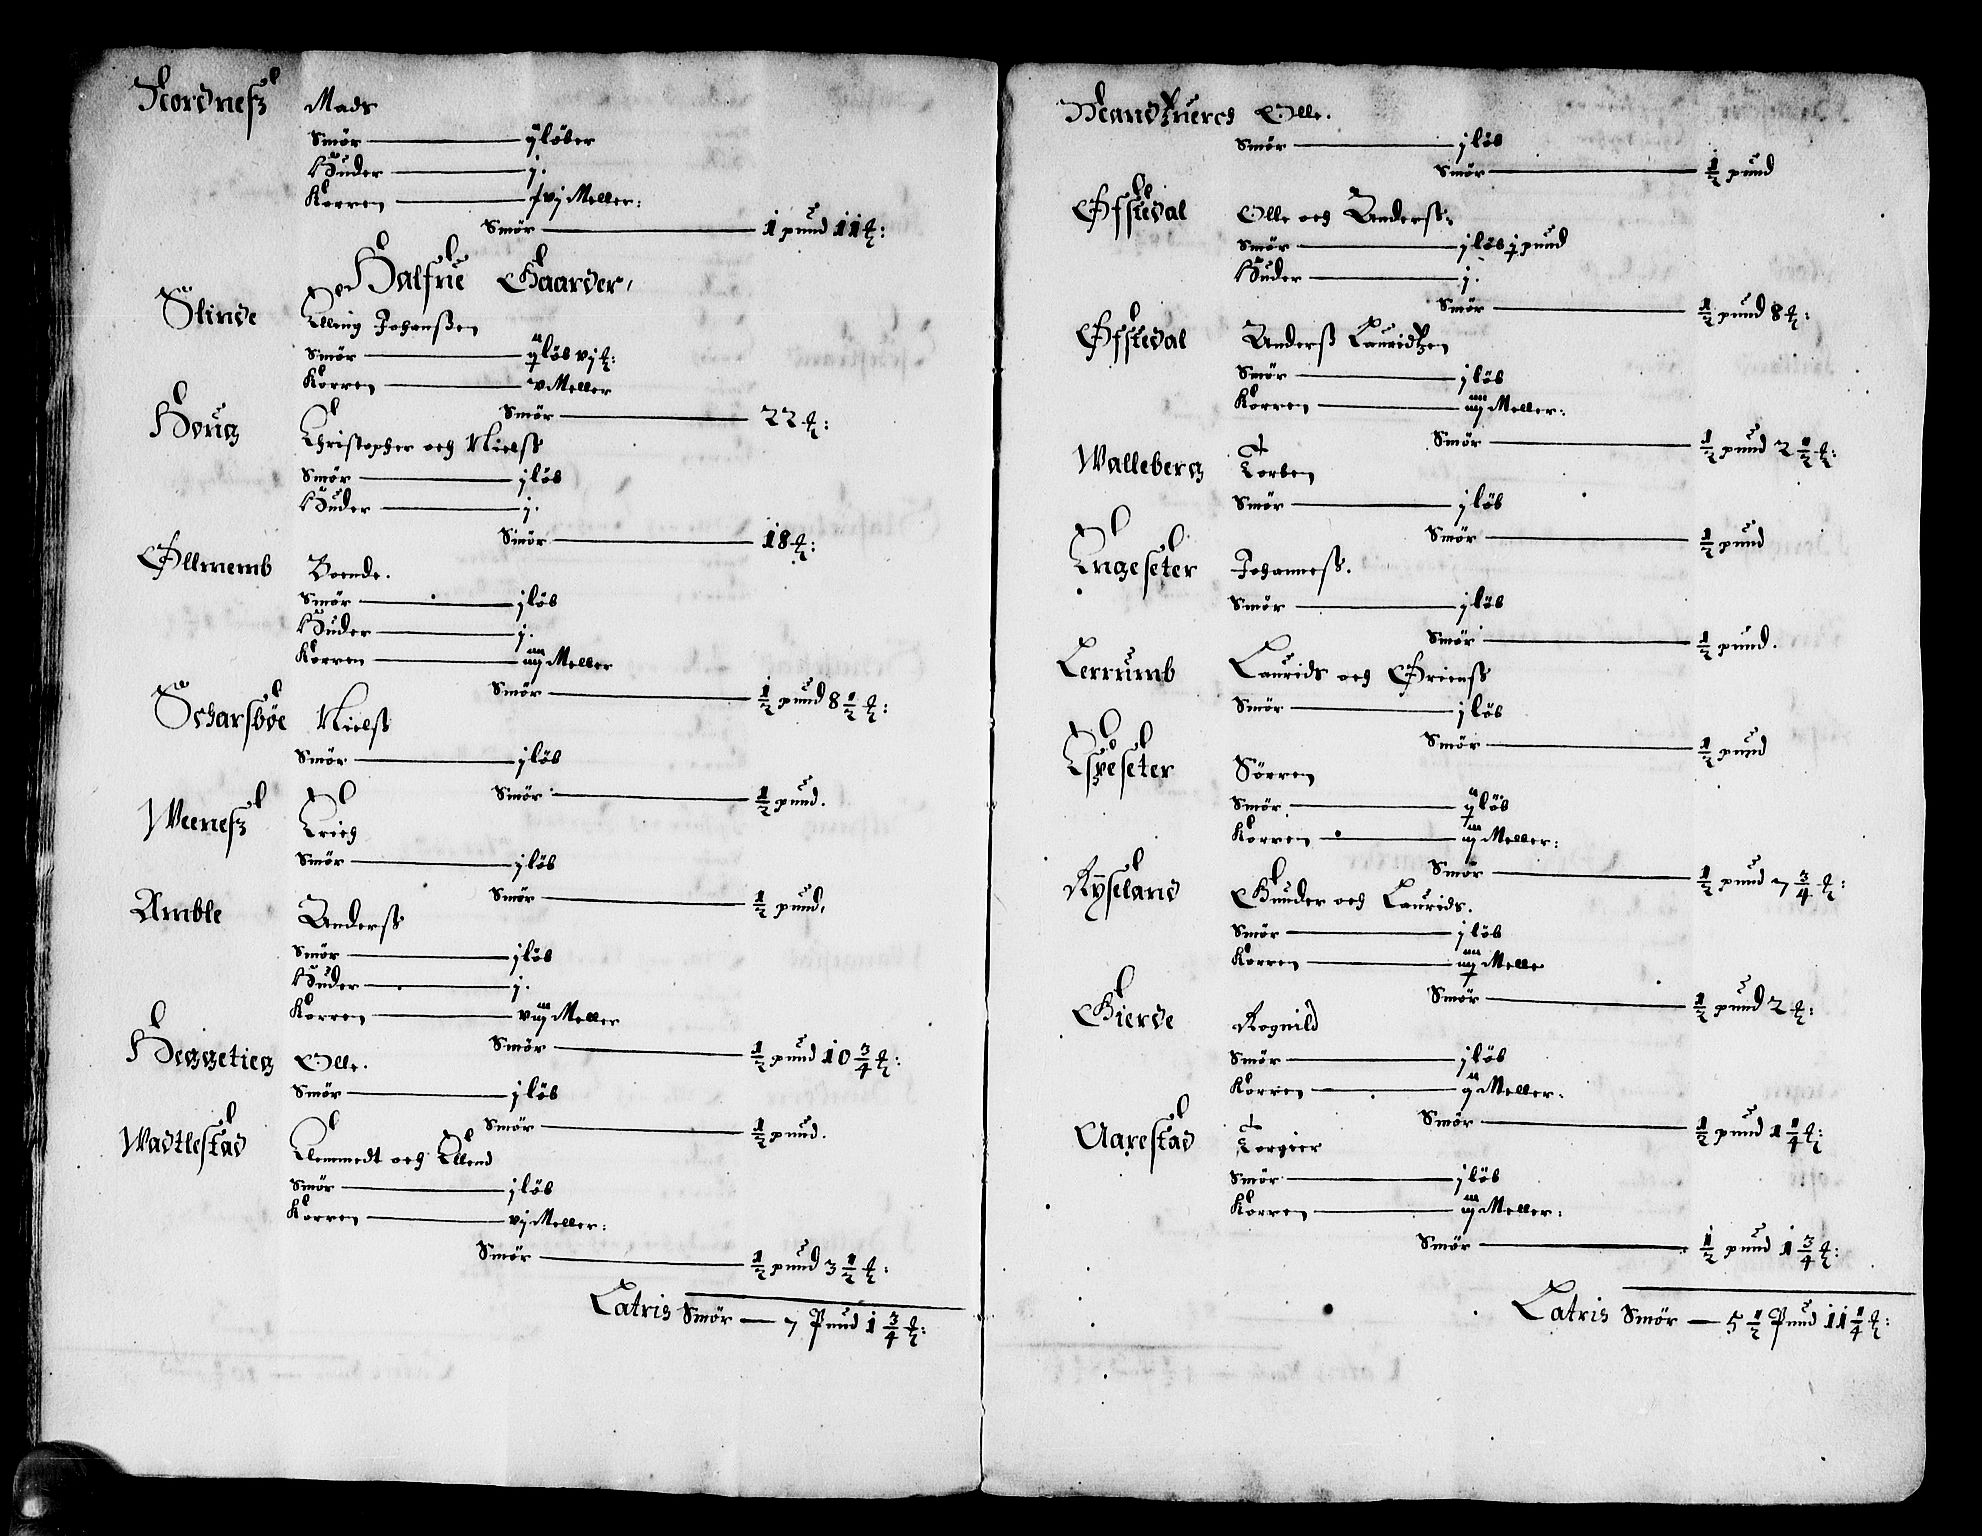 Nordnesß Mads
Smør — ij løber
Huder — j.
Korren — xvj Meller:
Smør — 1 pund 11 ℔:
Halfrie Gaarder,
Slinde Elling Johanßen
Smør — ij løb vj ℔:
Korren — v Meller
Smør — 22 ℔:
Houig Christopher och Nielss
Smør — j løb
Huder — j.
Smør — 18 ℔:
Ølmemb Boende.
Smør — j løb
Huder — j.
Korren — iiij Meller
Smør — ½ pund 8 ½ ℔:
Scharsbøe Nielss
Smør — j løb
Smør — ½ pund.
Weenesß Erich
Smør — j løb
Smør — ½ pund,
Amble Anderss
Smør — j løb
Huder — j.
Korren — viij Meller
Smør — ½ pund 10 ¾ ℔:
Heggetieg Olle.
Smør — j løb
Smør — ½ pund.
Wadtlestad Clemmedt och Ellend
Smør — j løb
Korren — vj Meller:
Smør — ½ pund 3 ½ ℔:
Latris Smør — 7 Pund 1 ¾ ℔:
Olle.
Smør — j løb
Smør — ½ pund
Øfstedal Olle och Anderss:
Smør — j løb j pund
Huder — j.
Smør — ½ pund 8 ℔:
Øfstedal Anderß Lauridtzen
Smør — j løb
Korren — iiij Meller:
Smør — ½ pund 2 ½ ℔:
Walleberg Torben
Smør — j løb
Smør — ½ pund
Engeseter Johanness.
Smør — j løb
Smør — ½ pund.
Lerrumb Laurids och Ørienss
Smør — j løb
Smør — ½ pund
Espeseter Sørren
Smør — ij løb
Korren — iij Meller:
Smør — ½ pund 7 ¾ ℔:
Ryseland Gunder och Laurids.
Smør — j løb
Korren — iiij Melle
Smør — ½ pund 2 ℔:
Gierde Rognild
Smør — j løb
Korren — ij Meller.
Smør — ½ pund 1 ¼ ℔:
Aarestad Torgier
Smør — j løb
Korren — iij Meller:
Smør — ½ pund 1 ¾ ℔:
Latris Smør — 5 ½ Pund 11 ¼ ℔: